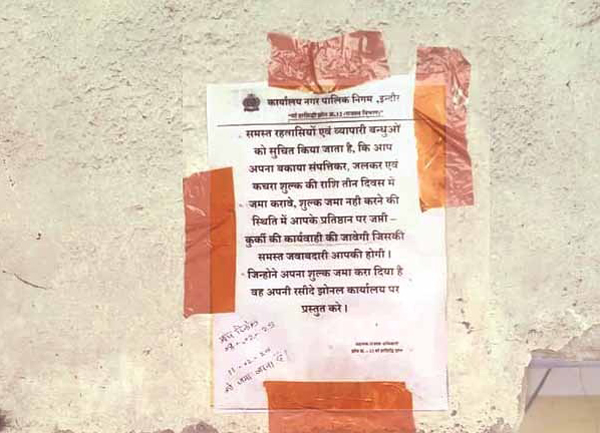 कार्यालय नगर पालिक निगम ,इन्दौर
"माँ हरसिद्धी झोन क्र.12 (राजस्व विभाग)"
समस्त रहवासियों एवं व्यापारी बन्धुओं
को सुचित किया जाता है, कि आप
अपना बकाया संपत्तिकर, जलकर एवं
कचरा शुल्क की राशि तीन दिवस में
जमा करावे, शुल्क जमा नही करने की
स्थिति में आपके प्रतिष्ठान पर जप्ती –
कुर्की की कार्यवाही की जावेगी जिसकी
समस्त जवाबदारी आपकी होगी।
जिन्होने अपना शुल्क जमा करा दिया है
वह अपनी रसीदे झोनल कार्यालय पर
प्रस्तुत करे।
जमा